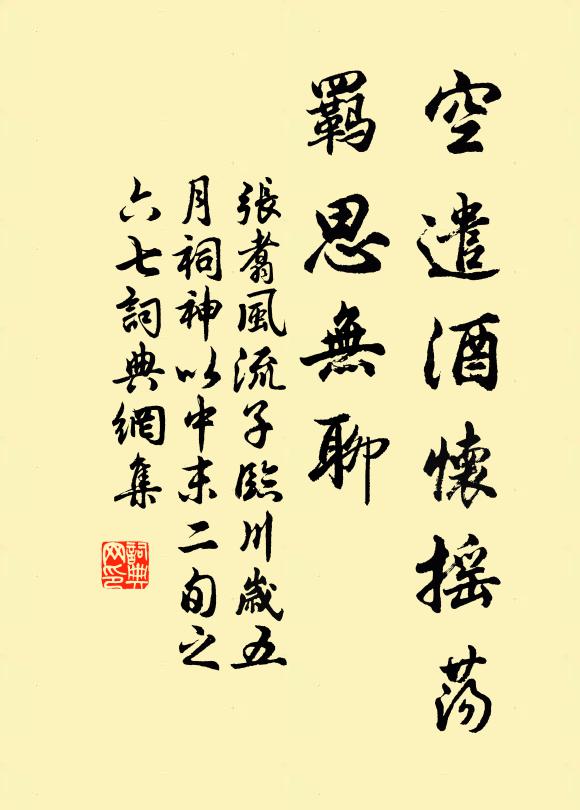 空遣酒懷摇蕩
羈思無聊
張翥風流子臨川歲五
月祠神以中末二旬之
六七詞典網集
詞典
网印